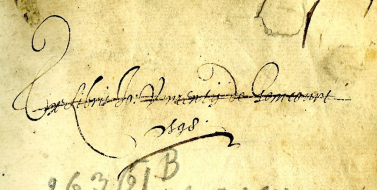 Ex libris Fr. Vincentij de Gomecourt
1598.
263 151 B